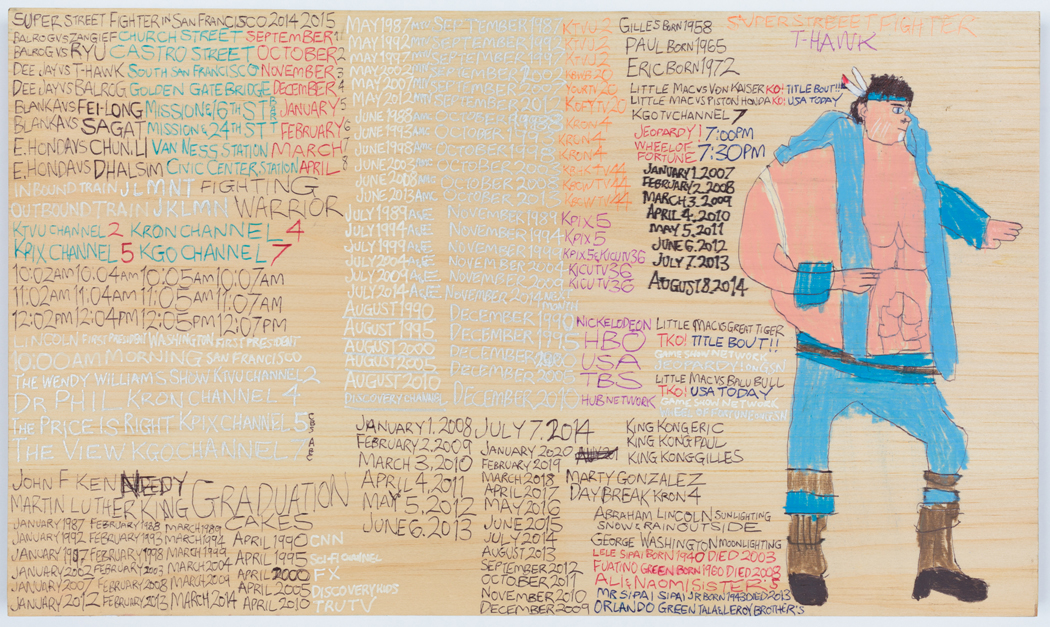 SUPER STREET FIGHTER IN SAN FRANCISCO 2014 2015
BALROG VS ZANGIEF CHURCH STREET SEPTEMBER 1
BALROG VS RYU CASTRO STREET OCTOBER 2
DEE JAY VS T-HAWK SOUTH SAN FRANCISCO NOVEMBER 3
DEE JAY VS BALROG GOLDEN GATE BRIDGE DECEMBER 4
BLANKA VS FEI-LONG MISSION & 16TH ST JANUARY 5
BLANKA VS SAGAT MISSION & 24TH ST FEBRUARY 6
E. HONDA VS CHUN.LI VAN NESS STATION MARCH 7
E. HONDA VS DHALSIM CIVIC CENTER STATION APRIL 8
INBOUND TRAIN J L M N T FIGHTING
OUTBOUND TRAIN J K L M N WARRIOR
KTVU CHANNEL 2 KRON CHANNEL 4
KPIX CHANNEL 5 KGO CHANNEL 7
10:02AM 10:04AM 10:05AM 10:07AM
11:02AM 11:04AM 11:05AM 11:07AM
12:02PM 12:04PM 12:05PM 12:07PM
LINCOLN FIRST PRESIDENT WASHINGTON FIRST PRESIDENT
10:00AM MORNING SAN FRANCISCO
THE WENDY WILLIAMS SHOW KTVU CHANNEL 2
DR PHIL KRON CHANNEL 4
THE PRICE IS RIGHT KPIX CHANNEL 5 CBS
THE VIEW KGO CHANNEL 7 ABC
JOHN F KENNEDY
MARTIN LUTHER KING GRADUATION
CAKES
JANUARY 1987 FEBRUARY 1988 MARCH 1989 APRIL 1990 CNN
JANUARY 1992 FEBRUARY 1993 MARCH 1994
JANUARY 1997 FEBRUARY 1998 MARCH 1999 APRIL 1995 SCI-FI CHANNEL
JANUARY 2002 FEBRUARY 2003 MARCH 2004 APRIL 2000 FX
JANUARY 2007 FEBRUARY 2008 MARCH 2009 APRIL 2005 DISCOVERY KIDS
JANUARY 2012 FEBRUARY 2013 MARCH 2014 APRIL 2010 TRUTV
MAY 1987 SEPTEMBER 1987 KTVU 2
MAY 1992 SEPTEMBER 1992 KTVU 2
MAY 1997 SEPTEMBER 1997 KTVU 2
MAY 2002 SEPTEMBER 2002 20
MAY 2007 SEPTEMBER 2007 20
MAY 2012 SEPTEMBER 2012 KOFY TV 20
JUNE 1988 AMC OCTOBER 1988 KRON 4
JUNE 1993 AMC OCTOBER 1993 KRON 4
JUNE 1998 AMC OCTOBER 1998 KRON 4
JUNE 2003 AMC OCTOBER 2003 TV 44
JUNE 2008 AMC OCTOBER 2008 KBCW TV 44
JUNE 2013 AMC OCTOBER 2013 KBCW TV 44
JULY 1989 AVE NOVEMBER 1989 KPIX 5
JULY 1994 AVE NOVEMBER 1994 KPIX 5
JULY 1999 AVE NOVEMBER 1999 KPIX 5 & KICU TV 36
JULY 2004 AVE NOVEMBER 2004 KICU TV 36
JULY 2009 AVE NOVEMBER 2009 KICU TV 36
JULY 2014 AVE NOVEMBER 2014 NEXT MONTH
AUGUST 1990 DECEMBER 1990 NICKELODEON
AUGUST 1995 DECEMBER 1995 HBO
AUGUST 2000 DECEMBER 2000 USA
AUGUST 2005 DECEMBER 2005 TBS
AUGUST 2010 DECEMBER 2010 HUB NETWORK
DISCOVERY CHANNEL
JANUARY 1. 2008
FEBRUARY 2. 2009
MARCH 3, 2010
APRIL 4. 2011
MAY 5. 2012
JUNE 6. 2013
JULY 7. 2014
JANUARY 2020
FEBRUARY 2019
MARCH 2018
APRIL 2017
MAY 2016
JUNE 2015
JULY 2014
AUGUST 2013
SEPTEMBER 2012
OCTOBER 2011
NOVEMBER 2010
DECEMBER 2009
GILLES BORN 1958
PAUL BORN 1965
ERIC BORN 1972
LITTLE MAC VS VON KAISER KO! TITLE BOUT!!
LITTLE MAC VS PISTON HONDA KO! USA TODAY
KGO TV CHANNEL 7
JEOPARDY! 7:00PM
WHEEL OF
FORTUNE 7:30PM
JANUARY 1. 2007
FEBRUARY 2. 2008
MARCH 3. 2009
APRIL 4. 2010
MAY 5, 2011
JUNE 6. 2012
JULY 7. 2013
AUGUST 8. 2014
LITTLE MAC VS GREAT TIGER
TKO! TITLE BOUT!!
GAME SHOW NETWORK
JEOPARDY! ON GSN
LITTLE MAC VS BALD BULL
TKO! USA TODAY
GAME SHOW NETWORK
WHEEL OF FORTUNE ON GSN
KING KONG ERIC
KING KONG PAUL
KING KONG GILLES
MARTY GONZALEZ
DAYBREAK KRON 4
ABRAHAM LINCOLN SUNLIGHTING
SNOW & RAIN OUTSIDE
GEORGE WASHINGTON MOONLIGHTING
LELE SIPAI BORN 1940 DIED 2003
FUATINO GREEN BORN 1960 DIED 2008
ALI & NAOMI SISTER'S
MR SIPAI SIPAI JR BORN 1943 DIED 2013
ORLANDO GREEN TALA & LEROY BROTHER'S
SUPER STREEET FIGHTER
T-HAWK